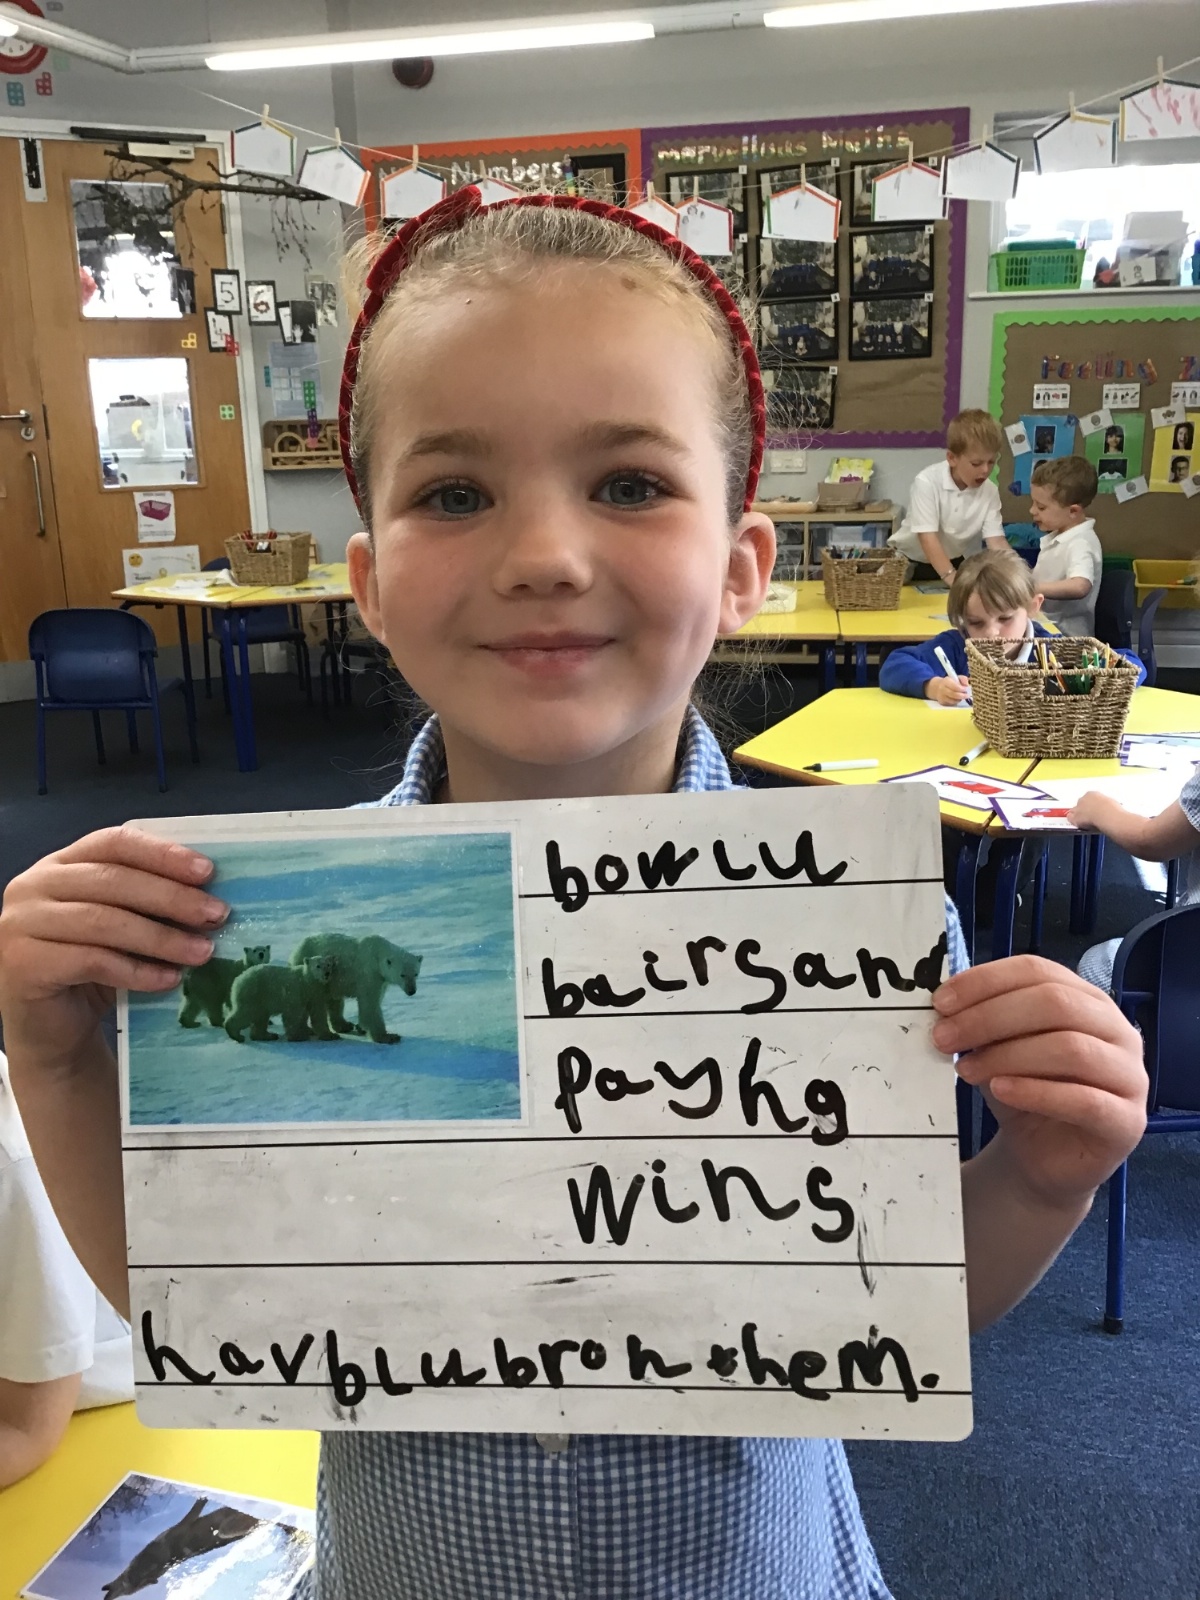 Numbers
marvellous Maths
5
6
Feeling
bowlu
bairsand
payhg
wins
havblubron them.